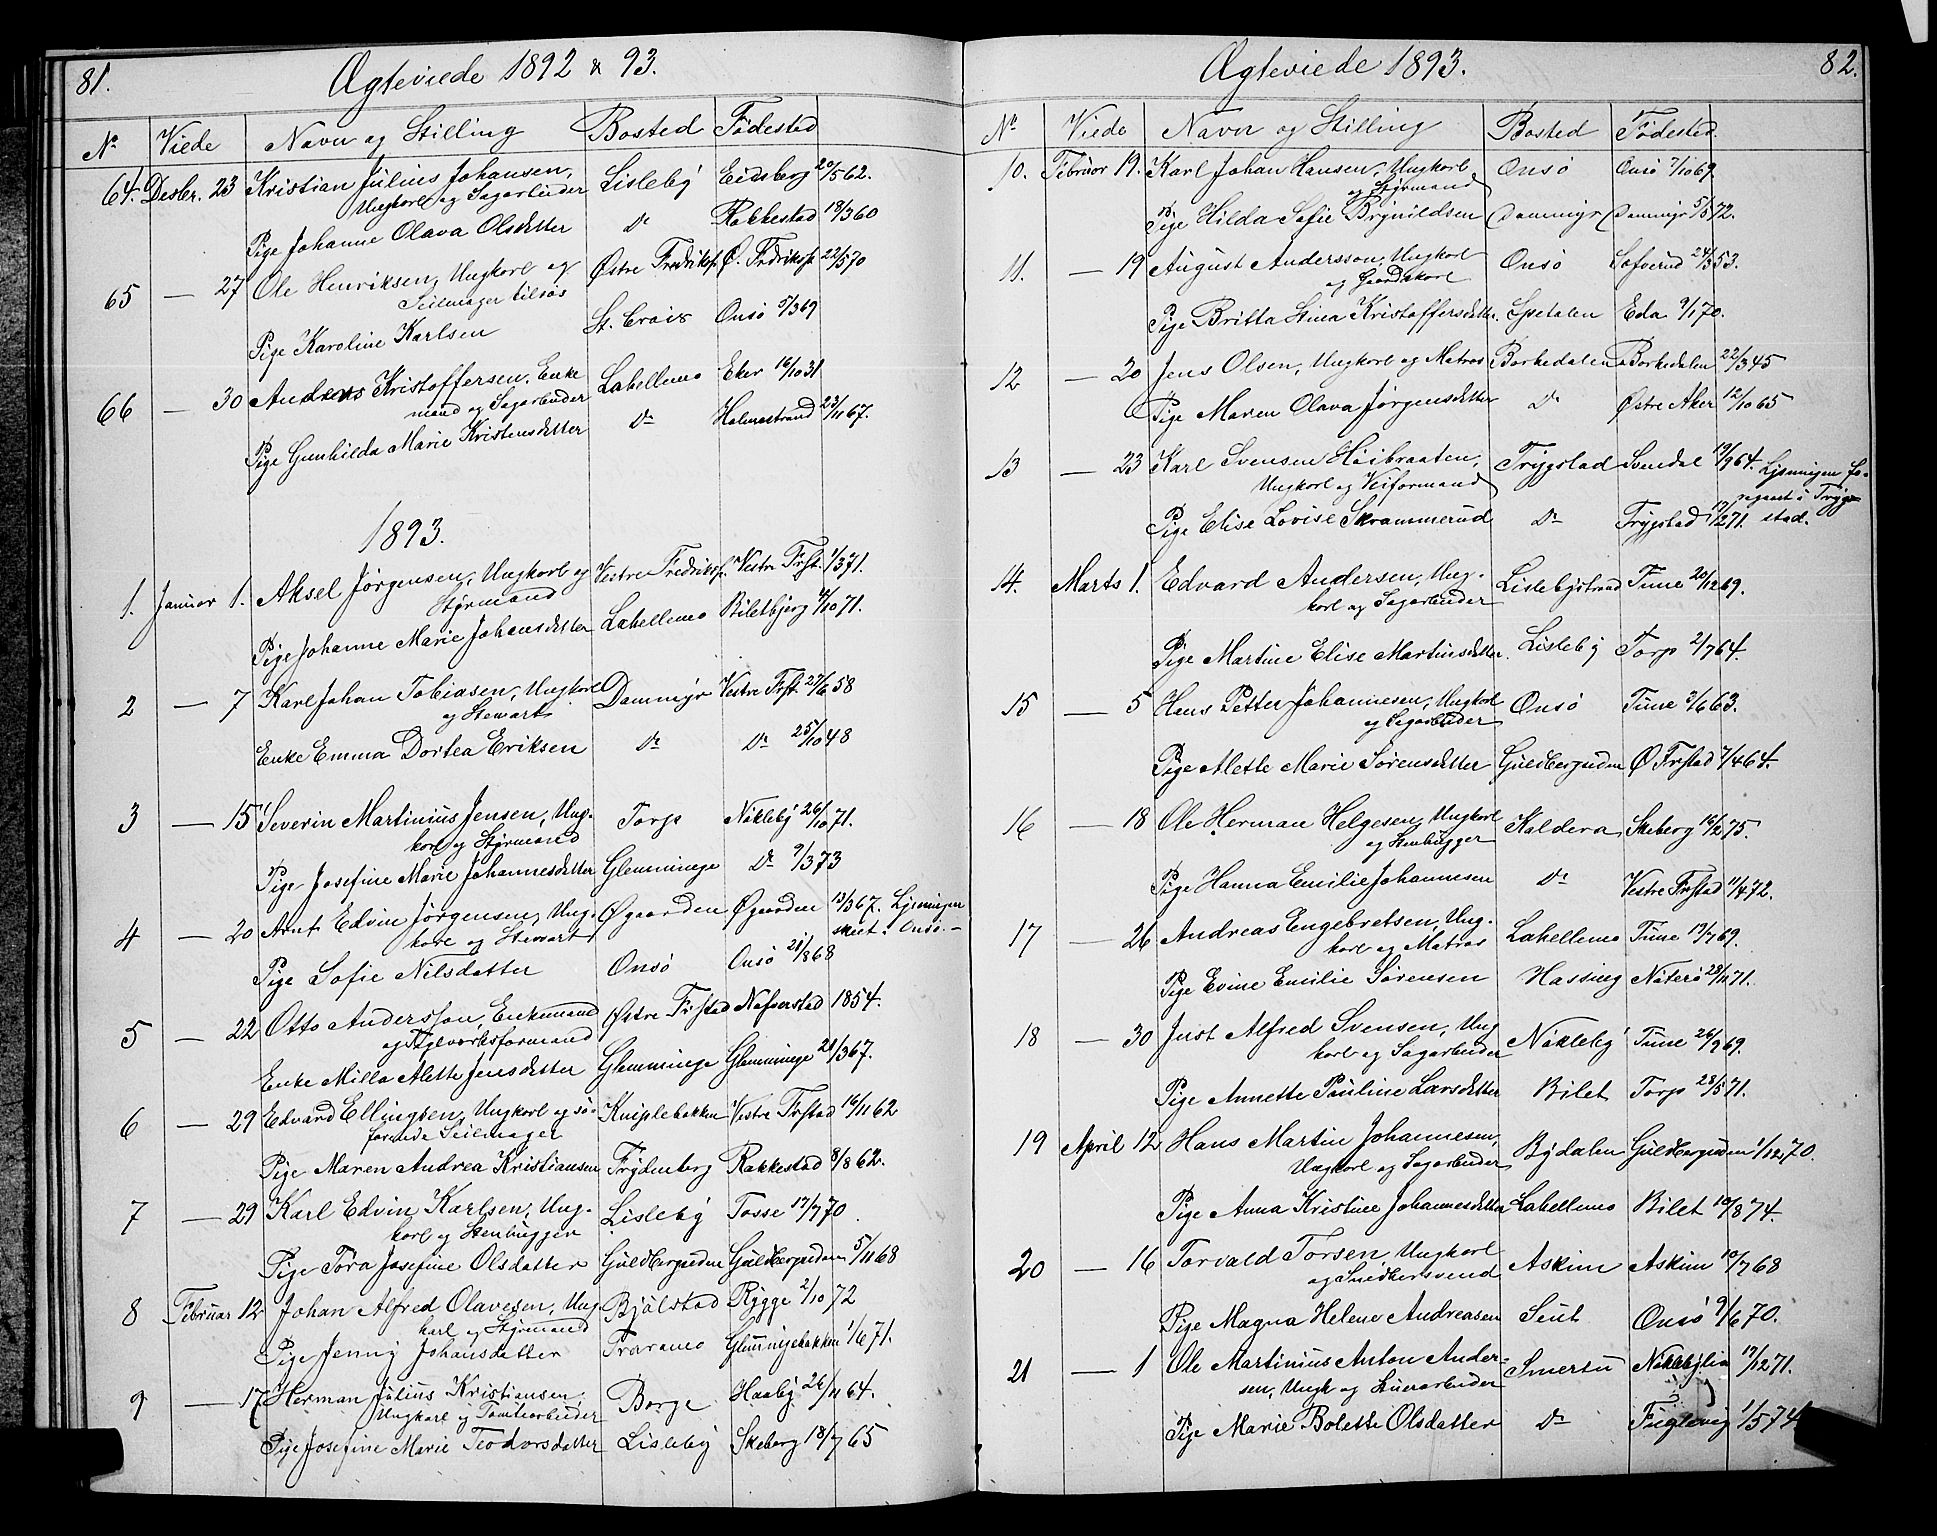 81.
Ægteviede 1892 & 93.
No Viede Navn og Stilling Bosted Fødested
64. Desbr. 23 Kristian Julius Johansen, Lisleby Eidsberg 20/5 62.
Ungkarl og Sagarbeider
Pige Johanne Olava Olsdatter Do Rakkestad 18/3 60
65 — 27 Ole Henriksen, Ungkarl og Østre Fredrikst. Ø. Fredrikst. 22/5 70
Seilmager tilsøs
Pige Karoline Karlsen St. Croix Onsø 5/3 69
66 — 30 Andreas Kristoffersen, Enke Labellemo Eker 16/10 31
mand og Sagarbeider
Pige Gunhilda Marie Kristensdatter Do Holmestrand 23/11 67.
1893.
1. Januar 1. Aksel Jørgensen, Ungkarl og Vestre Fredrikst. Vestre Frst. 1/3 71.
Styrmand
Pige Johanne Marie Johansdatter Labellemo Biletbjerg 4/10 71.
2 — 7 Karl Johan Tobiasen, Ungkarl Dammyr Vestre Frst. 27/6 58
og Stewart
Enke Emma Dortea Eriksen Do Do 25/10 48
3 — 15 Severin Martinius Jensen, Ung- Torp Nøkleby 26/10 71.
karl og Styrmand
Pige Josefine Marie Johannesdatter Glemminge Do 9/3 73
4 — 20 Arnt Edvin Jørgensen, Ung- Øgaarden Øgaarden 13/3 67. Lysningen
karl og Stewart skeet i Onsø.
Pige Sofie Nilsdatter Onsø Onsø 21/8 68
5 — 22 Otto Andersson, Enkemand Østre Frstad Nafverstad 1854.
og Teglverksformand
Enke Milla Alette Jensdatter Glemminge Glemminge 21/3 67.
6 — 29 Edvard Ellingsen, Ungkarl og sø- Kniplebakken Vestre Frstad 16/11 62
farende Seilmager
Pige Maren Andrea Kristiansen Frydenberg Rakkestad 8/8 62.
7 — 29 Karl Edvin Karlsen, Ung- Lisleby Tosse 17/7 70
karl og Stenhugger
Pige Tora Josefine Olsdatter Guldbergseden Guldbergseden 5/11 68
8 Februar 12 Johan Alfred Olavesen, Ung Bjølstad Rygge 2/10 72
karl og Styrmand
Pige Jenny Johansdatter Traramo Glemmingebakken 1/6 71.
9 — 17 Herman Julius Kristiansen, Borge Haaby 26/11 64.
Ungkarl og Tomtearbeider
Pige Josefine Marie Teodorsdatter Lisleby Skeberg 18/7 65
Ægteviede 1893.
82.
No Viede Navn og Stilling Bosted Fødested
10. Februar 19. Karl Johan Hansen, Ungkarl Onsø Onsø 7/10 69.
og Styrmand
Pige Hilda Sofie Brynildsen Dammyr Dammyr 5/5 72.
11. — 19 August Andersson, Ungkarl Onsø Sofverud 24/3 53.
og Gaardskarl
Pige Britta Stina Kristoffersdatter Spetalen Eda 9/1 70.
12 — 20 Jens Olsen, Ungkarl og Matros Borkedalen Borkedalen 22/3 45
Pige Maren Olava Jørgensdatter Do Østre Aker 12/10 65
13 — 23 Karl Svensen Høibraaten, Trygstad Svendal 19/9 64. Lysningen fo-
Ungkarl og Veiformand regaaet i Tryg-
Pige Elise Lovise Skrammerud Do Trygstad 17/2 71. stad.
14. Marts 1. Edvard Andersen, Ung- Lislebystrand Tune 20/12 69.
karl og Sagarbeider
Pige Martine Elise Martinsdatter Lisleby Torp 2/7 64.
15 — 5 Hans Petter Johannesen, Ungkarl Onsø Tune 3/6 63.
og Sagarbeider
Pige Alette Marie Sørensdatter Guldbergseden Ø Frstad 7/4 64.
16 — 18 Ole Herman Helgesen, Ungkarl Kaldera Skeberg 16/2 75.
og Stenhugger
Pige Hanna Emilie Johannesen Do Vestre Frstad 11/4 72.
17 — 26 Andreas Engebretsen, Ung- Labellemo Tune 19/7 69.
karl og Matros
Pige Evine Emilie Sørensen Hassing Nøterø 28/11 71.
18 — 30 Just Alfred Svensen, Ung Nøkleby Tune 26/9 69.
karl og Sagarbeider
Pige Annette Pauline Larsdatter Bilet Torp 28/5 71.
19 April 12 Hans Martin Johannesen, Bydalen Guldbergseden 1/12 70.
Ungkarl og Sagarbeider
Pige Anna Kristine Johannesdatter Labellemo Bilet 10/8 74.
20 — 16 Torvald Torsen Ungkarl Askim Askim 10/7 68
og Snedkersvend
Pige Magna Helene Andreasen Seut Onsø 9/6 70.
21 — 1 Ole Martinius Anton Ander- Smertu Nøklebylia 17/12 71.
sen, Ungk og Luearbeider
Pige Marie Bolette Olsdatter Do Fuglevig 1/5 74